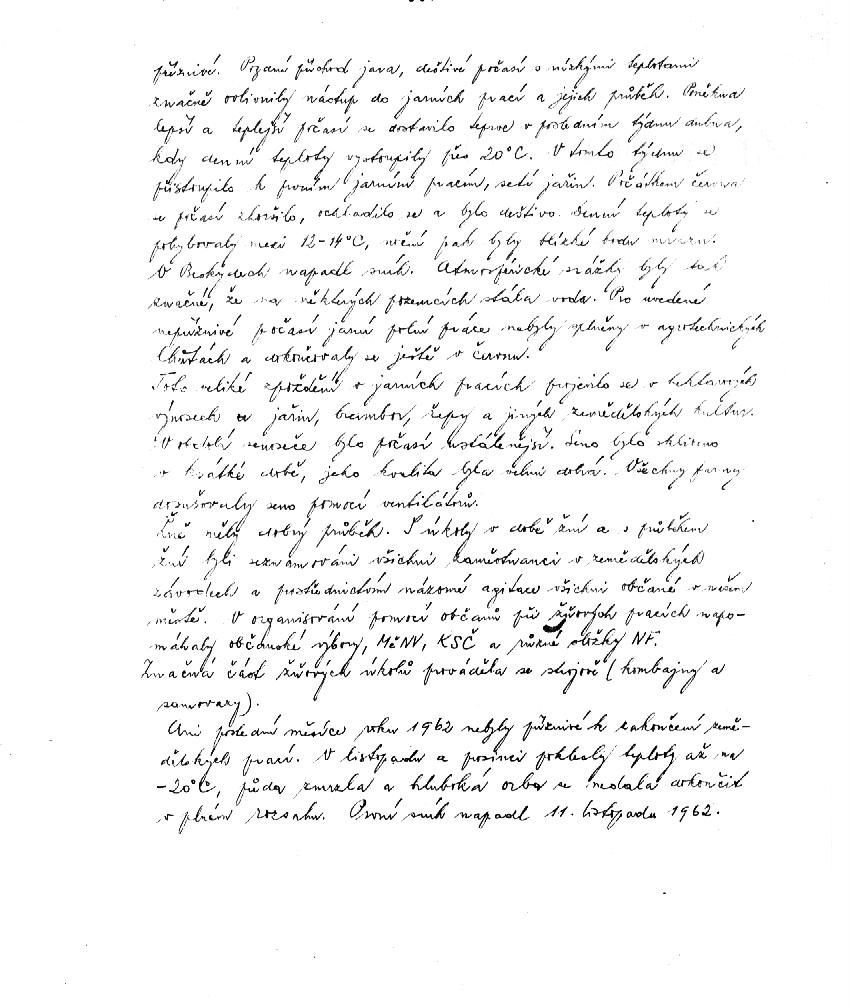 příznivé. Pozdní příchod jara, deštivé počasí s nízkými teplotami
značně ovlivnily nástup do jarních prací a jejich průběh. Poněkud
lepší a teplejší počasí se dostavilo teprve v posledním týdnu dubna,
kdy denní teploty vystoupily přes 20°C. V tomto týdnu se
přistoupilo k prvním jarním pracím, setí jařin. Počátkem června
se počasí zhoršilo, ochladilo se a bylo deštivo. Denní teploty se
pohybovaly mezi 12-14°C, noční pak byly blízké bodu mrazu.
V Beskydech napadl sníh. Atmosférické srážky byly tak
značné, že na některých pozemcích stála voda. Pro uvedené
nepříznivé počasí jarní polní práce nebyly splněny v agrotechnických
lhůtách a dokončovaly se ještě v červnu.
Toto veliké zpoždění v jarních pracích projevilo se v hektarových
výnosech u jařin, brambor, řepy a jiných zemědělských kultur.
V období senoseče bylo počasí ustálenější. Seno bylo sklizeno
v krátké době, jeho kvalita byla velmi dobrá. Všechny farmy
dosušovaly seno pomocí ventilátorů.
Žně měly dobrý průběh. S úkoly v době žní a s průběhem
žní byli seznamováni všichni zaměstnanci v zemědělských
závodech a prostřednictvím názorné agitace všichni občané v našem
městě. V organisování pomoci občanů při žňových pracích napo-
máhaly občanské výbory, MěNV, KSČ a různé složky NF.
Značná část žňových úkolů prováděla se strojově (kombajny a
samovazy).
Ani poslední měsíce roku 1962 nebyly příznivé k zakončení země-
dělských prací. V listopadu a prosinci poklesly teploty až na
-20°C, půda zmrzla a hluboká orba se nedala dokončit
v plném rozsahu. První sníh napadl 11. listopadu 1962.